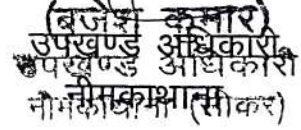 (बृजेश कुमार)
उपखण्ड अधिकारी
उपखण्ड अधिकारी
नीमकाथाना
नीमकाथाना (सीकर)